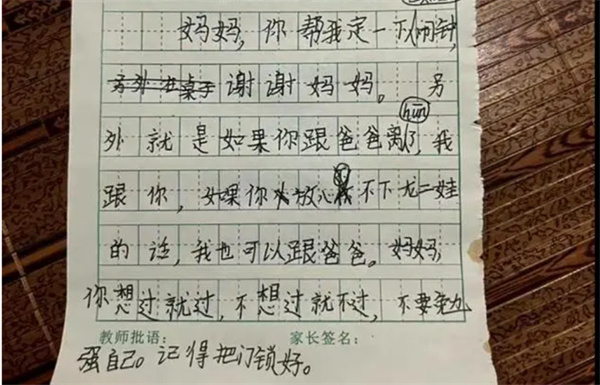 妈妈,你帮我定一下闹钟,
谢谢妈妈。另
hūn
外就是如果你跟爸爸离了,我
跟你,如果你放心不下尤二娃
的话,我也可以跟爸爸。妈妈
你想过就过,不想过就不过,不要勉
教师批语: 家长签名:
强自己。记得把门锁好。